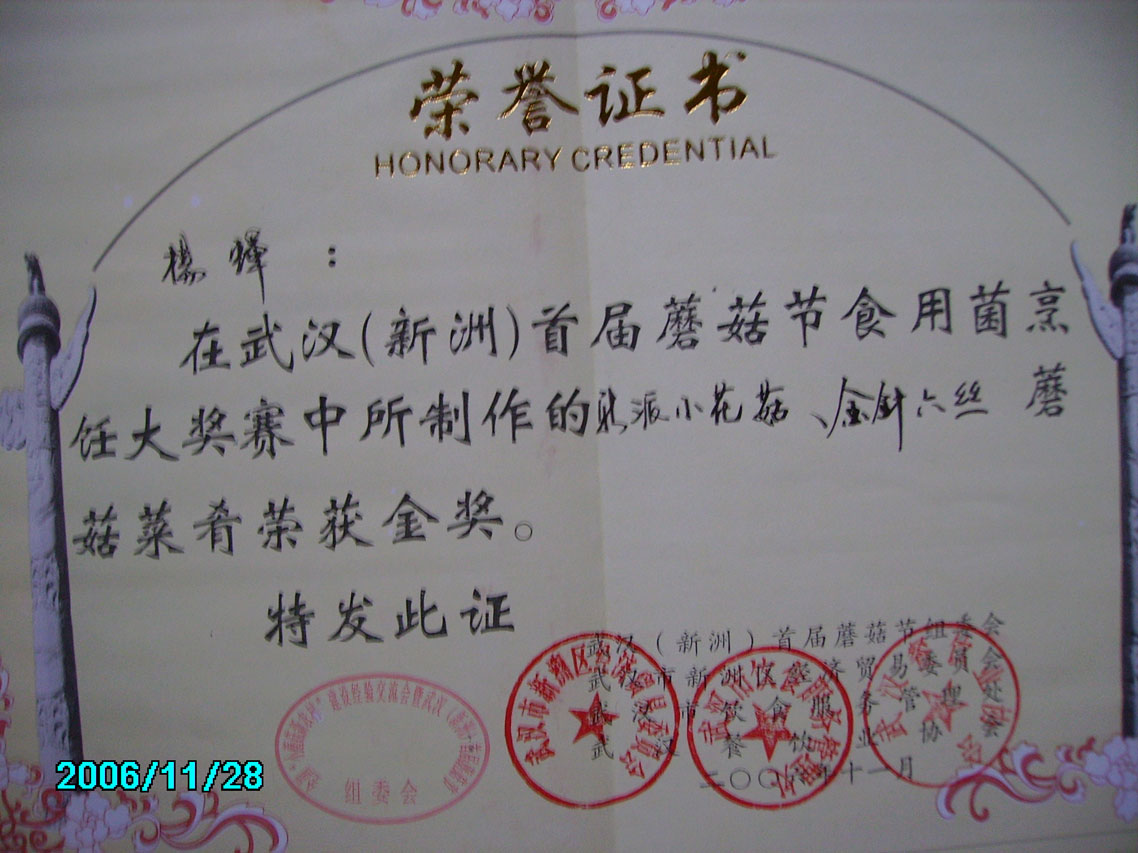 荣誉证书
HONORARY CREDENTIAL
杨 ：
在武汉(新洲)首届蘑菇节食用菌烹
饪大奖赛中所制作的 派小花菇、金针六丝 蘑
菇菜肴荣获金奖。
特发此证
武汉(新洲)首届蘑菇节组委会
武汉市新洲区经济贸易委员会
武汉市饮食服务管理处
武汉餐饮业协会
二〇〇六年十一月
组委会
2006/11/28